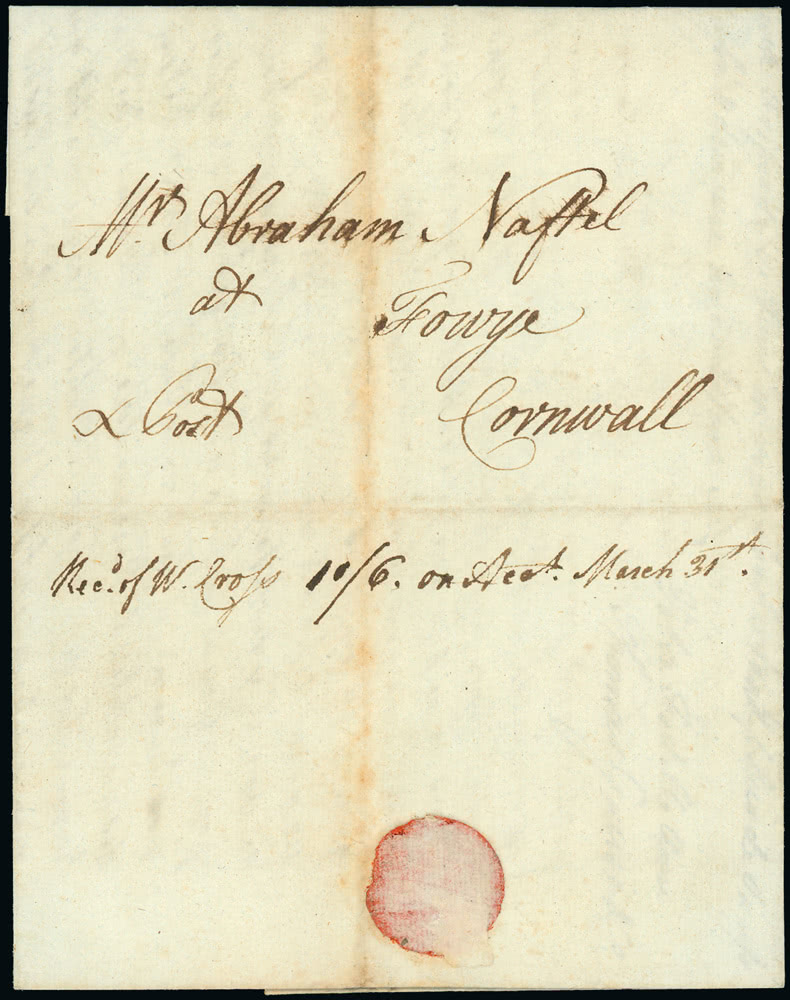 Mr. Abraham Naftel
at Fowye
& Post Cornwall
Recd. of W. Cross 10/6. on Acct. March 31st.